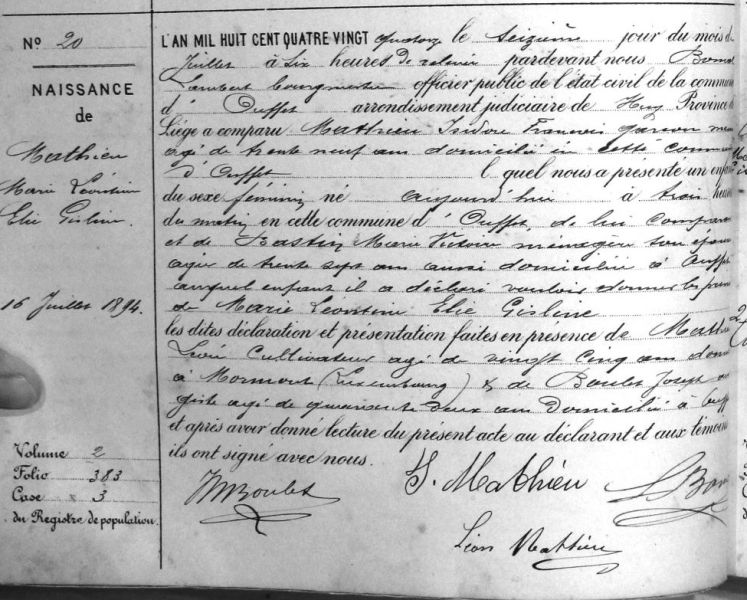 Nº 20
NAISSANCE
de
Mathieu
Marie Léontine
Elie Gisline.
16 Juillet 1894.
Volume 2
Folio 383
Case x 3
du Registre de population.
L'AN MIL HUIT CENT QUATRE VINGT quatorze le seizième jour du mois de
Juillet à six heures de relevée pardevant nous
Lambert bourgmestre officier public de l'état civil de la commune
d' Ouffet arrondissement judiciaire de Huy Province de
Liége a comparu Mathieu Isidore François
agé de trente neuf ans domicilié en cette commune
d' Ouffet l quel nous a présenté un enfant
du sexe féminin né aujourd'hui à trois heures
du matin en cette commune d' Ouffet, de lui comparant
et de Bastin Marie Victoire ménagère son épouse
agée de trente sept ans aussi domiciliée à Ouffet
auquel enfant il a déclaré vouloir donner les prénoms
de Marie Léontine Elie Gisline
les dites déclaration et présentation faites en présence de Mathieu
Léon Cultivateur agé de vingt cinq ans
à Mormont (Luxembourg) & de Boulet Joseph
agé de quarante deux ans domicilié à
et après avoir donné lecture du présent acte au déclarant et aux témoins
ils ont signé avec nous.
Boulet
Mathieu
Léon Mathieu